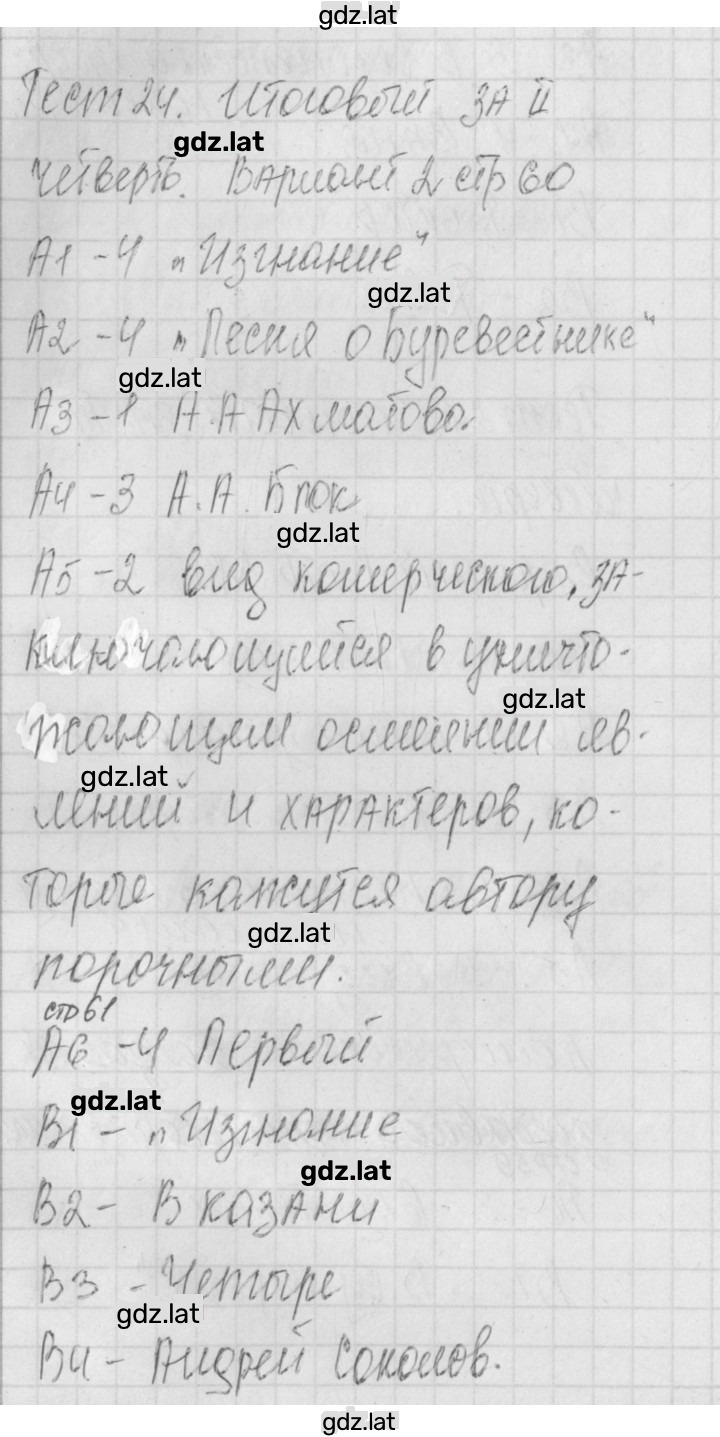 gdz.lat
Тест 24. Итоговый за II
gdz.lat
четверть. Вариант 2 стр 60
А1 - 4 „Изгнание"
gdz.lat
А2 - 4 „Песня о Буревестнике"
gdz.lat
А3 - 1 А. А Ахматова.
А4 - 3 А. А. Блок
gdz.lat
А5 - 2 вид комерческого, за-
ключающийся в уничто-
gdz.lat
жающем осмеянии яв-
gdz.lat
лений и характеров, ко-
торые кажутся автору
gdz.lat
порочными.
стр 61
А6 - 4 Первый
gdz.lat
В1 - „Изгнание
gdz.lat
В2 - В казани
В3 - Четыре
gdz.lat
В4 - Андрей Соколов.
gdz.lat